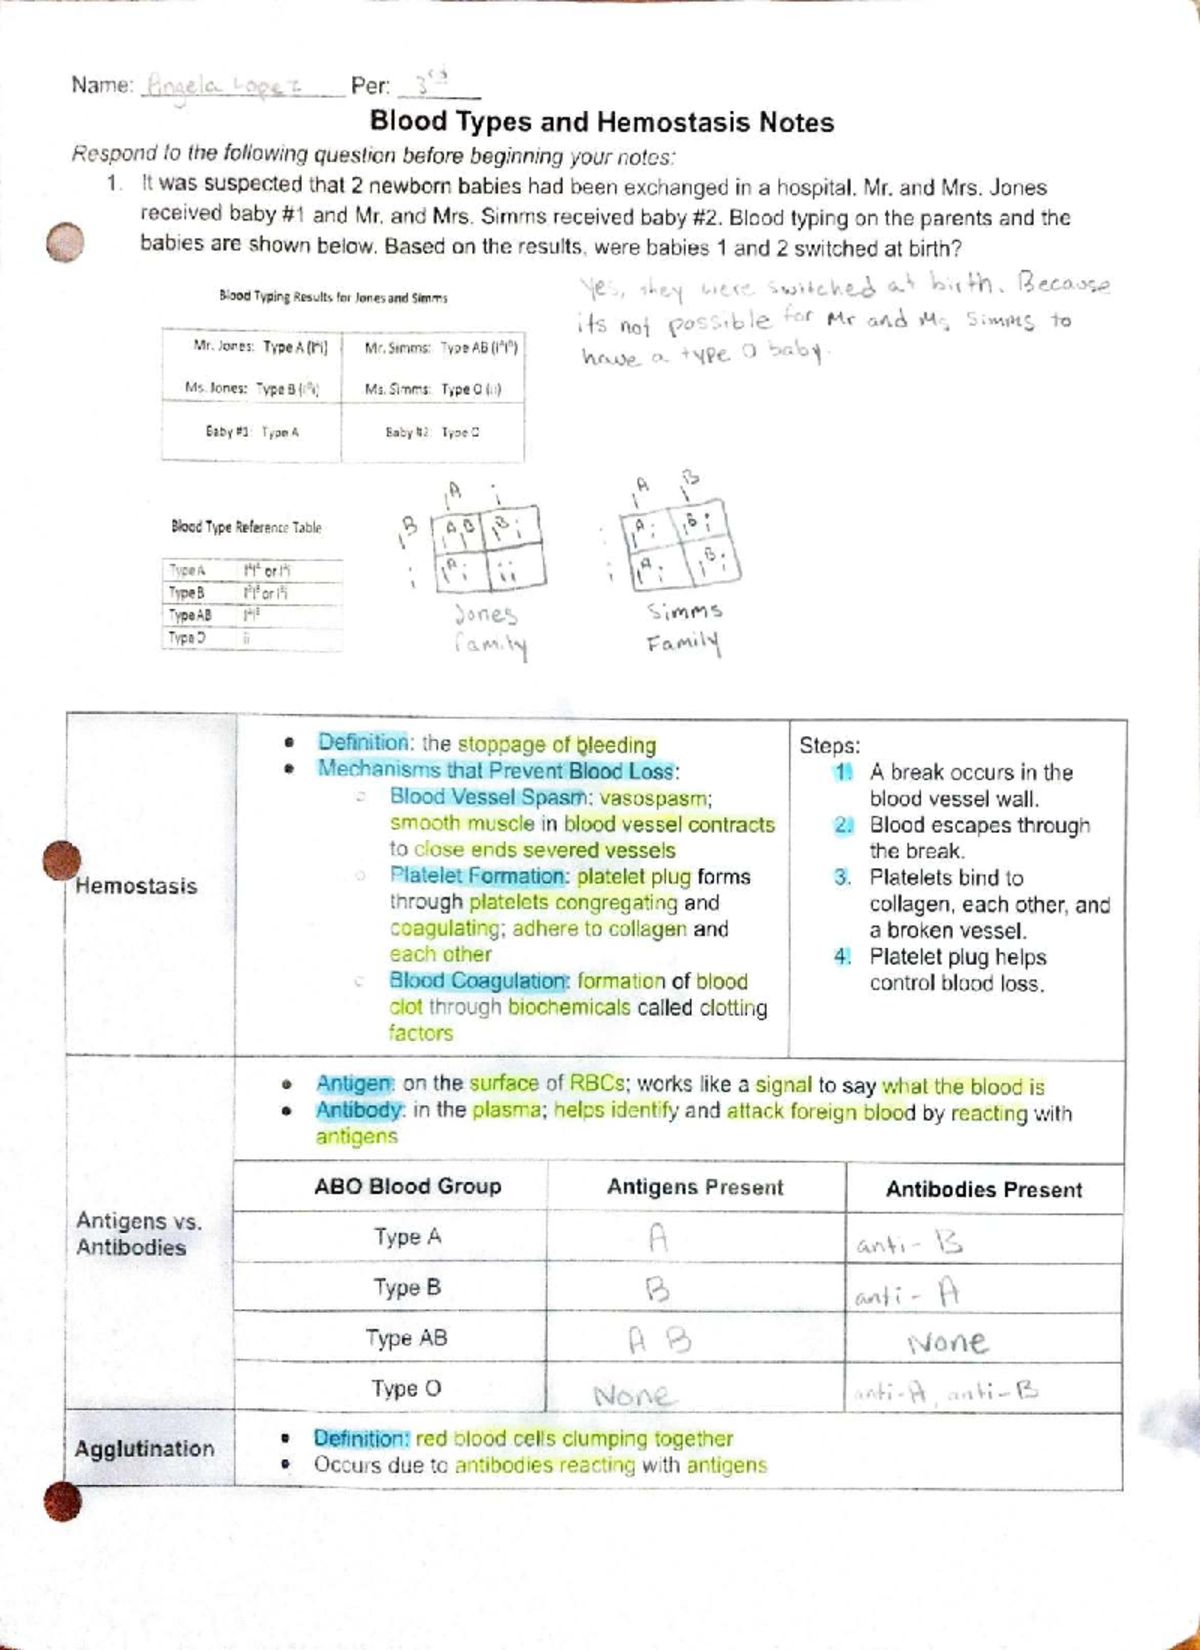 Name: Angela Lopez Per: 3rd
Blood Types and Hemostasis Notes
Respond to the following question before beginning your notes:
1. It was suspected that 2 newborn babies had been exchanged in a hospital. Mr. and Mrs. Jones
received baby #1 and Mr. and Mrs. Simms received baby #2. Blood typing on the parents and the
babies are shown below. Based on the results, were babies 1 and 2 switched at birth?
Yes, they were switched at birth. Because
its not possible for Mr and Ms Simms to
have a type O baby.
Blood Typing Results for Jones and Simms
Mr. Jones: Type A (Iᴬi)
Mr. Simms: Type AB (IᴬIᴮ)
Ms. Jones: Type B (Iᴮi)
Ms. Simms: Type O (ii)
Baby #1: Type A
Baby #2: Type O
Blood Type Reference Table
Type A IᴬIᴬ or Iᴬi
Type B IᴮIᴮ or Iᴮi
Type AB IᴬIᴮ
Type O ii
Iᴬ i
Iᴮ IᴬIᴮ Iᴮi
i Iᴬi ii
Jones
family
Iᴬ Iᴮ
i Iᴬi Iᴮi
i Iᴬi Iᴮi
Simms
Family
Hemostasis
• Definition: the stoppage of bleeding
• Mechanisms that Prevent Blood Loss:
○ Blood Vessel Spasm: vasospasm;
smooth muscle in blood vessel contracts
to close ends severed vessels
○ Platelet Formation: platelet plug forms
through platelets congregating and
coagulating; adhere to collagen and
each other
○ Blood Coagulation: formation of blood
clot through biochemicals called clotting
factors
Steps:
1. A break occurs in the
blood vessel wall.
2. Blood escapes through
the break.
3. Platelets bind to
collagen, each other, and
a broken vessel.
4. Platelet plug helps
control blood loss.
Antigens vs.
Antibodies
• Antigen: on the surface of RBCs; works like a signal to say what the blood is
• Antibody: in the plasma; helps identify and attack foreign blood by reacting with
antigens
ABO Blood Group Antigens Present Antibodies Present
Type A A anti-B
Type B B anti-A
Type AB A B None
Type O None anti-A, anti-B
Agglutination
• Definition: red blood cells clumping together
• Occurs due to antibodies reacting with antigens